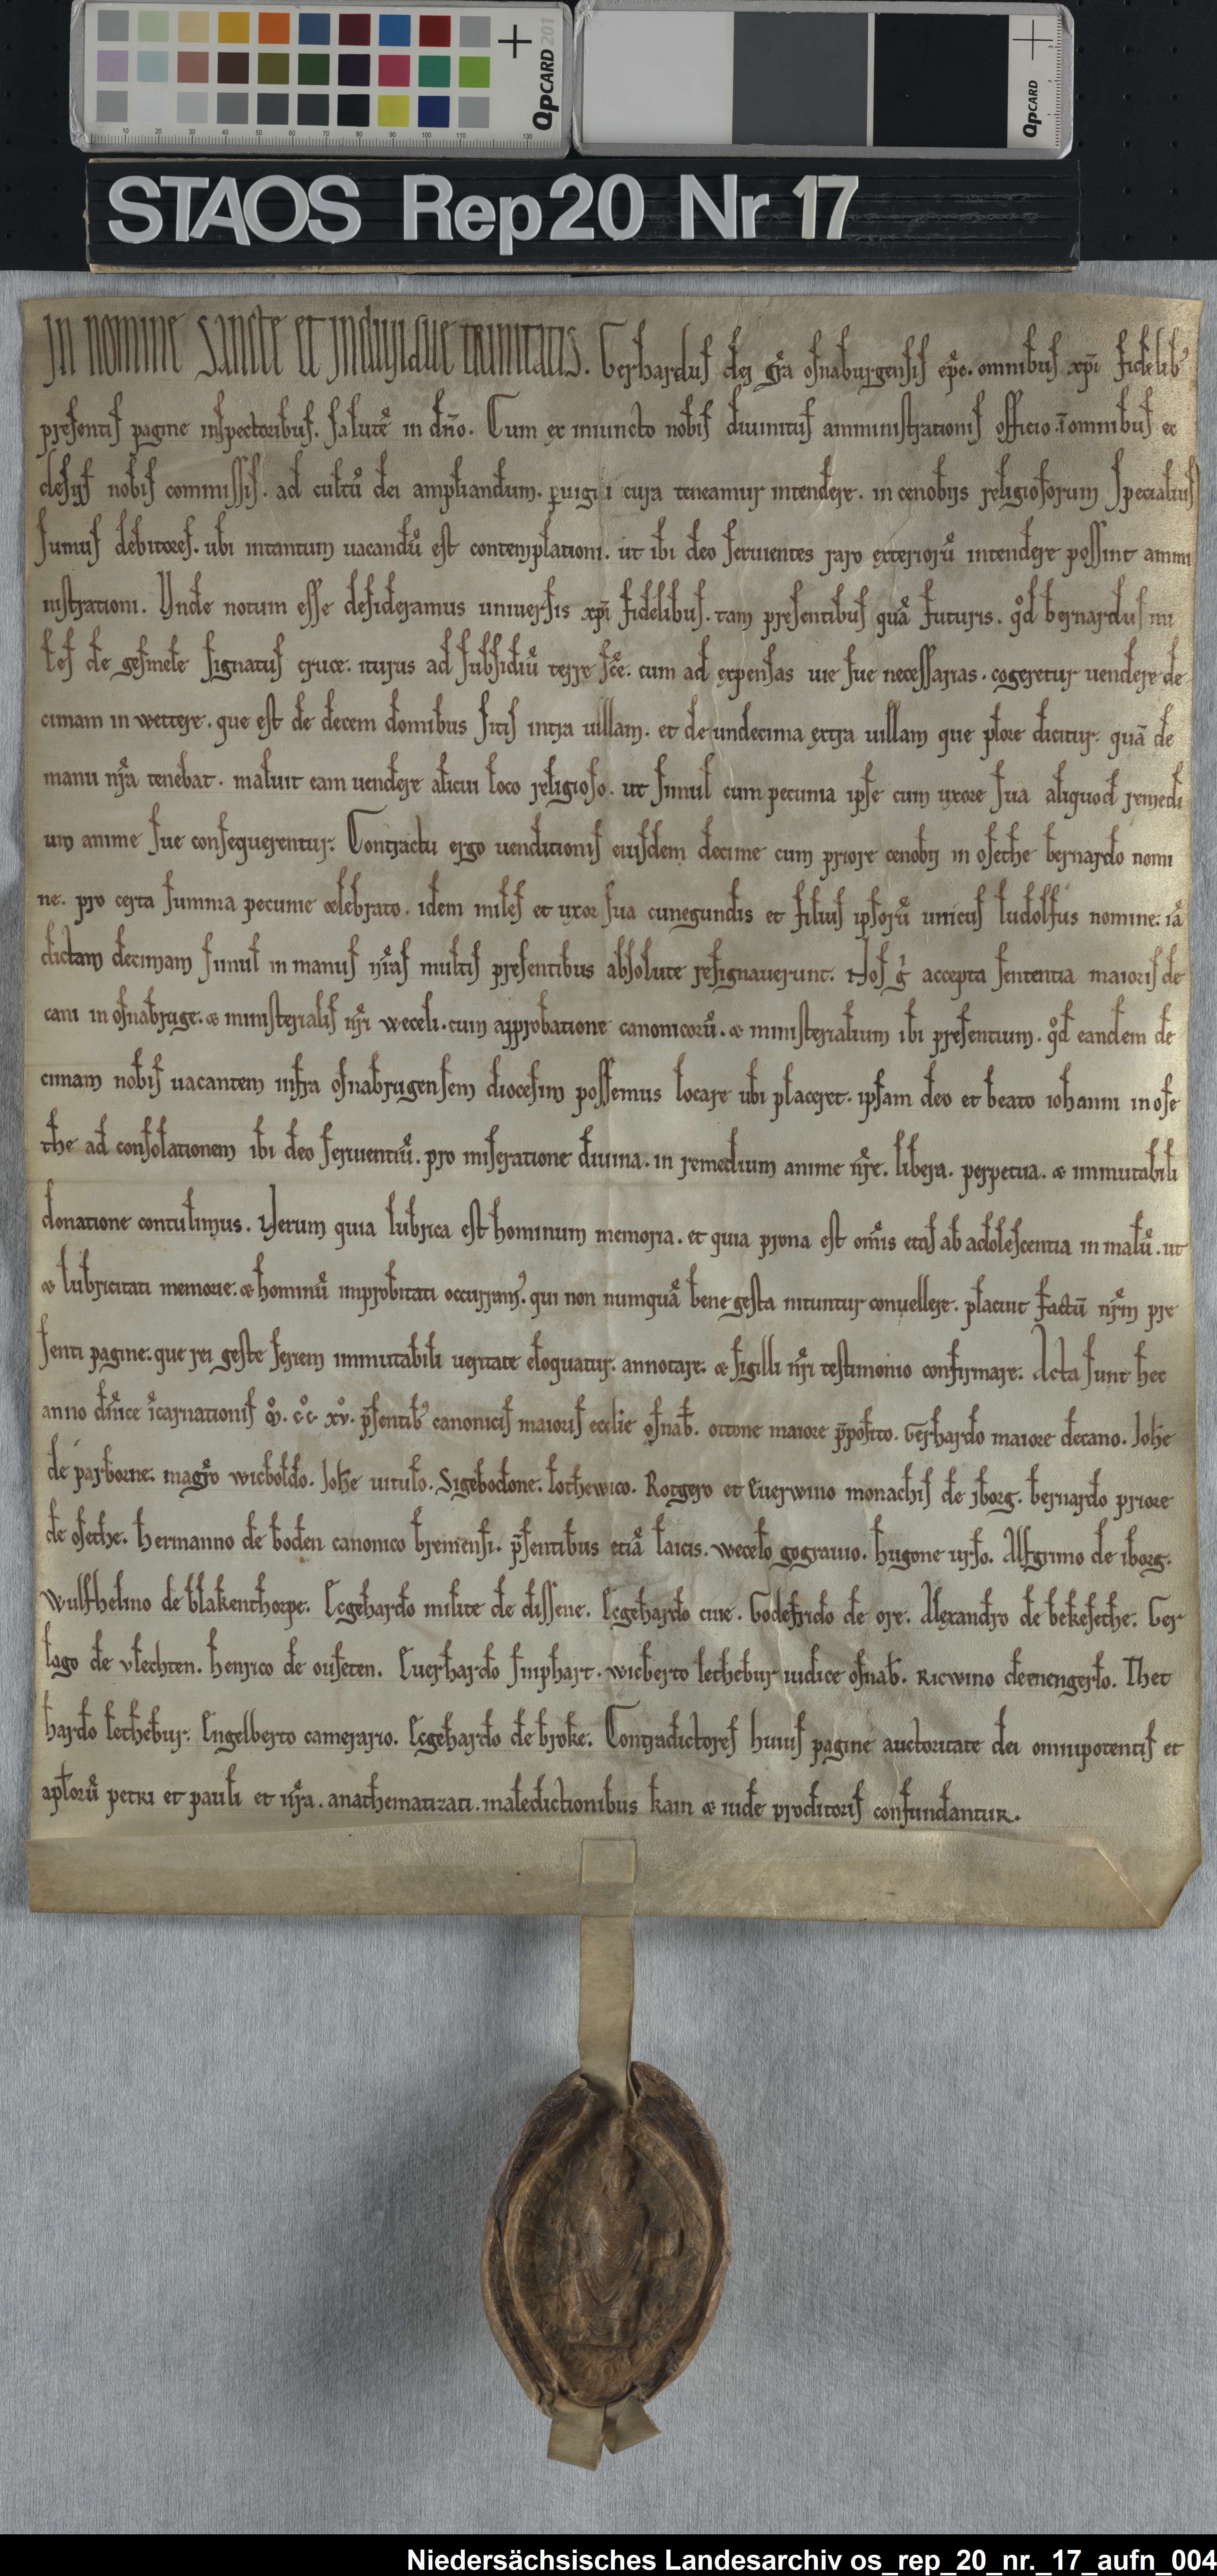 QpCARD 201
10 20 30 40 50 60 70 80 90 100 110 130
QpCARD
STAOS Rep 20 Nr 17
In nomine sancte et indiuidue trinitatis. Gerhardus dei gr̄a osnaburgensis ep̄c. omnibus xp̄i fidelibꝰ
presentis pagine inspectoribus. salutē in dn̄o. Cum ex iniuncto nobis diuinitus amministrationis officio. ī omnibus ec
clesijs nobis commissis. ad cultū dei ampliandum. ꝑuigili cura teneamur intendere. in cenobijs religiosorum specialius
sumus debitores. ubi intantum uacandū est contemplationi. ut ibi deo seruientes raro exteriorū intendere possint ammi
nistrationi. Vnde notum esse desideramus uniuersis xp̄i fidelibus. tam presentibus quā futuris. qd̄ bernardus mi
les de gesmele signatus cruce. iturus ad subsidiū terre sc̄e. cum ad expensas uie sue necessarias. cogeretur uendere de
cimam in wettere. que est de decem domibus sitis intra uillam. et de undecima extra uillam que plore dicitur. quā de
manu nr̄a tenebat. maluit eam uendere alicui loco religioso. ut simul cum pecunia ipse cum uxore sua aliquod remedi
um anime sue consequerentur. Contractu ergo uenditionis eiusdem decime cum priore cenobij in osethe bernardo nomi
ne. pro certa summa pecunie celebrato. idem miles et uxor sua cunegundis et filius ipsorū unicus ludolfus nomine. iā
dictam decimam simul in manus nr̄as multis presentibus absolute resignauerunt. Nos g̊ accepta sententia maioris de
cani in osnabruge. & ministerialis nr̄i weceli. cum approbatione canonicorū. & ministerialium ibi presentium. qd̄ eandem de
cimam nobis uacantem infra osnabrugensem diocesim possemus locare ubi placeret. ipsam deo et beato iohanni in ose
the ad consolationem ibi deo seruientiū. pro miseratione diuina. in remedium anime nr̄e. libera. perpetua. & immutabili
donatione contulimus. Verum quia lubrica est hominum memoria. et quia prona est om̄is etas ab adolescentia in malū. ut
& lubricitati memorie. & hominū improbitati occurramꝰ. qui non numquā bene gesta nituntur conuellere. placuit factū nr̄m pre
senti pagine. que rei geste seriem immutabili ueritate eloquatur. annotare. & sigilli nr̄i testimonio confirmare. Acta sunt hec
anno dn̄ice īcarnationis M̊. c̊c̊. xv̊. p̄sentibꝰ canonicis maioris ecclie osnab̄. ottone maiore p̄posito. Gerhardo maiore decano. Joh̄e
de parborne. magr̄o wicboldo. Joh̄e uitulo. Sigebodone. lothewico. Rotgero et Euerwino monachis de iborg. bernardo priore
de osethe. hermanno de boden canonico bremensi. p̄sentibus etiā laicis. wecelo gograuio. hugone urso. Alfgrimo de iborg.
wulfhelmo de blakenthorpe. Ecgehardo milite de dissene. Ecgehardo ciue. Godefrido de ore. Alexandro de bekesethe. Ger
lago de vlechten. henrico de ouseten. Euerhardo sinphart. wicberto lethebur iudice osnab̄. Ricwino de mengerlo. Thet
hardo lethebur. Engelberto camerario. Ecgehardo de broke. Contradictores huius pagine auctoritate dei omnipotentis et
apl̄orū petri et pauli et nr̄a. anathematizati. maledictionibus kain & iude proditoris confundantur.
Niedersächsisches Landesarchiv os_rep_20_nr._17_aufn_004